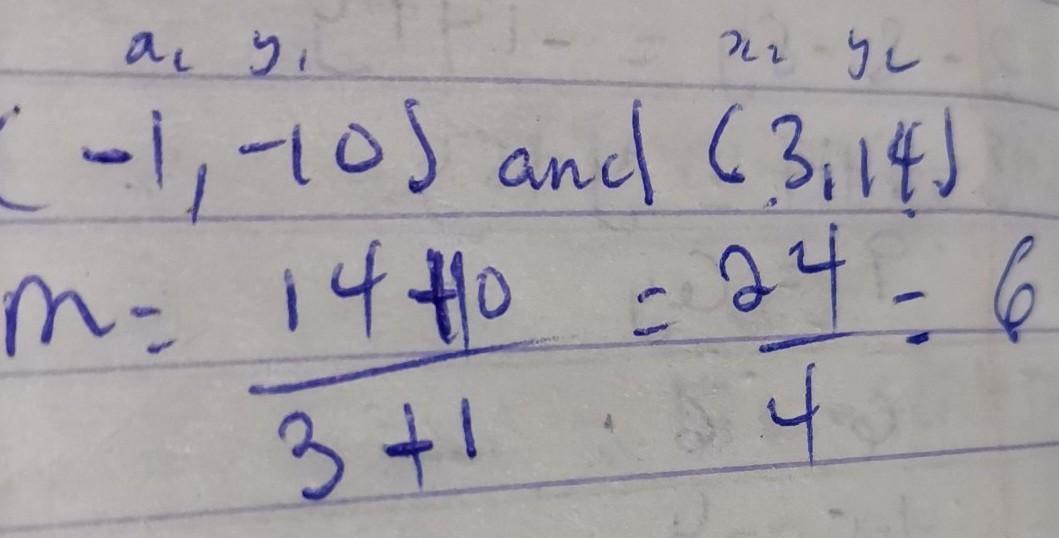 x₁ y₁ x₂ y₂
(-1, -10) and (3, 14)
m = 14 + 10 / 3 + 1 = 24 / 4 = 6